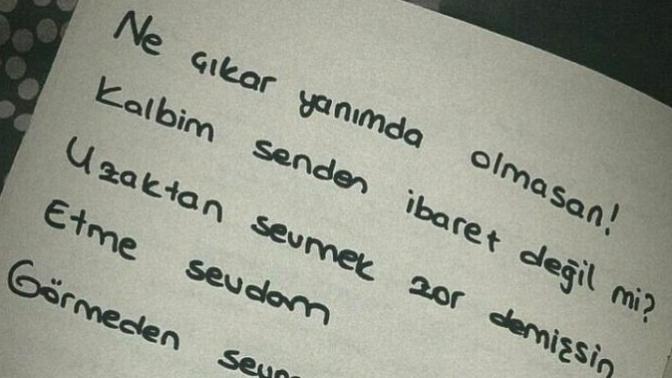 Ne çıkar yanımda olmasan!
Kalbim senden ibaret değil mi?
Uzaktan sevmek zor demişsin
Etme sevdam
Görmeden